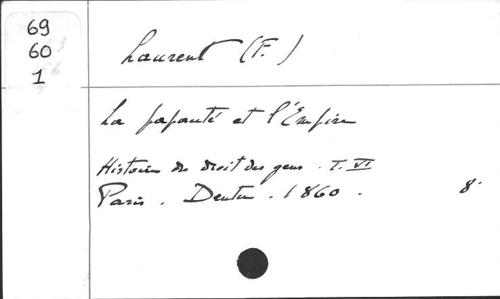 69
60
1
Laurent (F.)
La papauté et l'Empire
Histoire du droit des gens. T. VI
Paris. Dentu. 1860. 8°